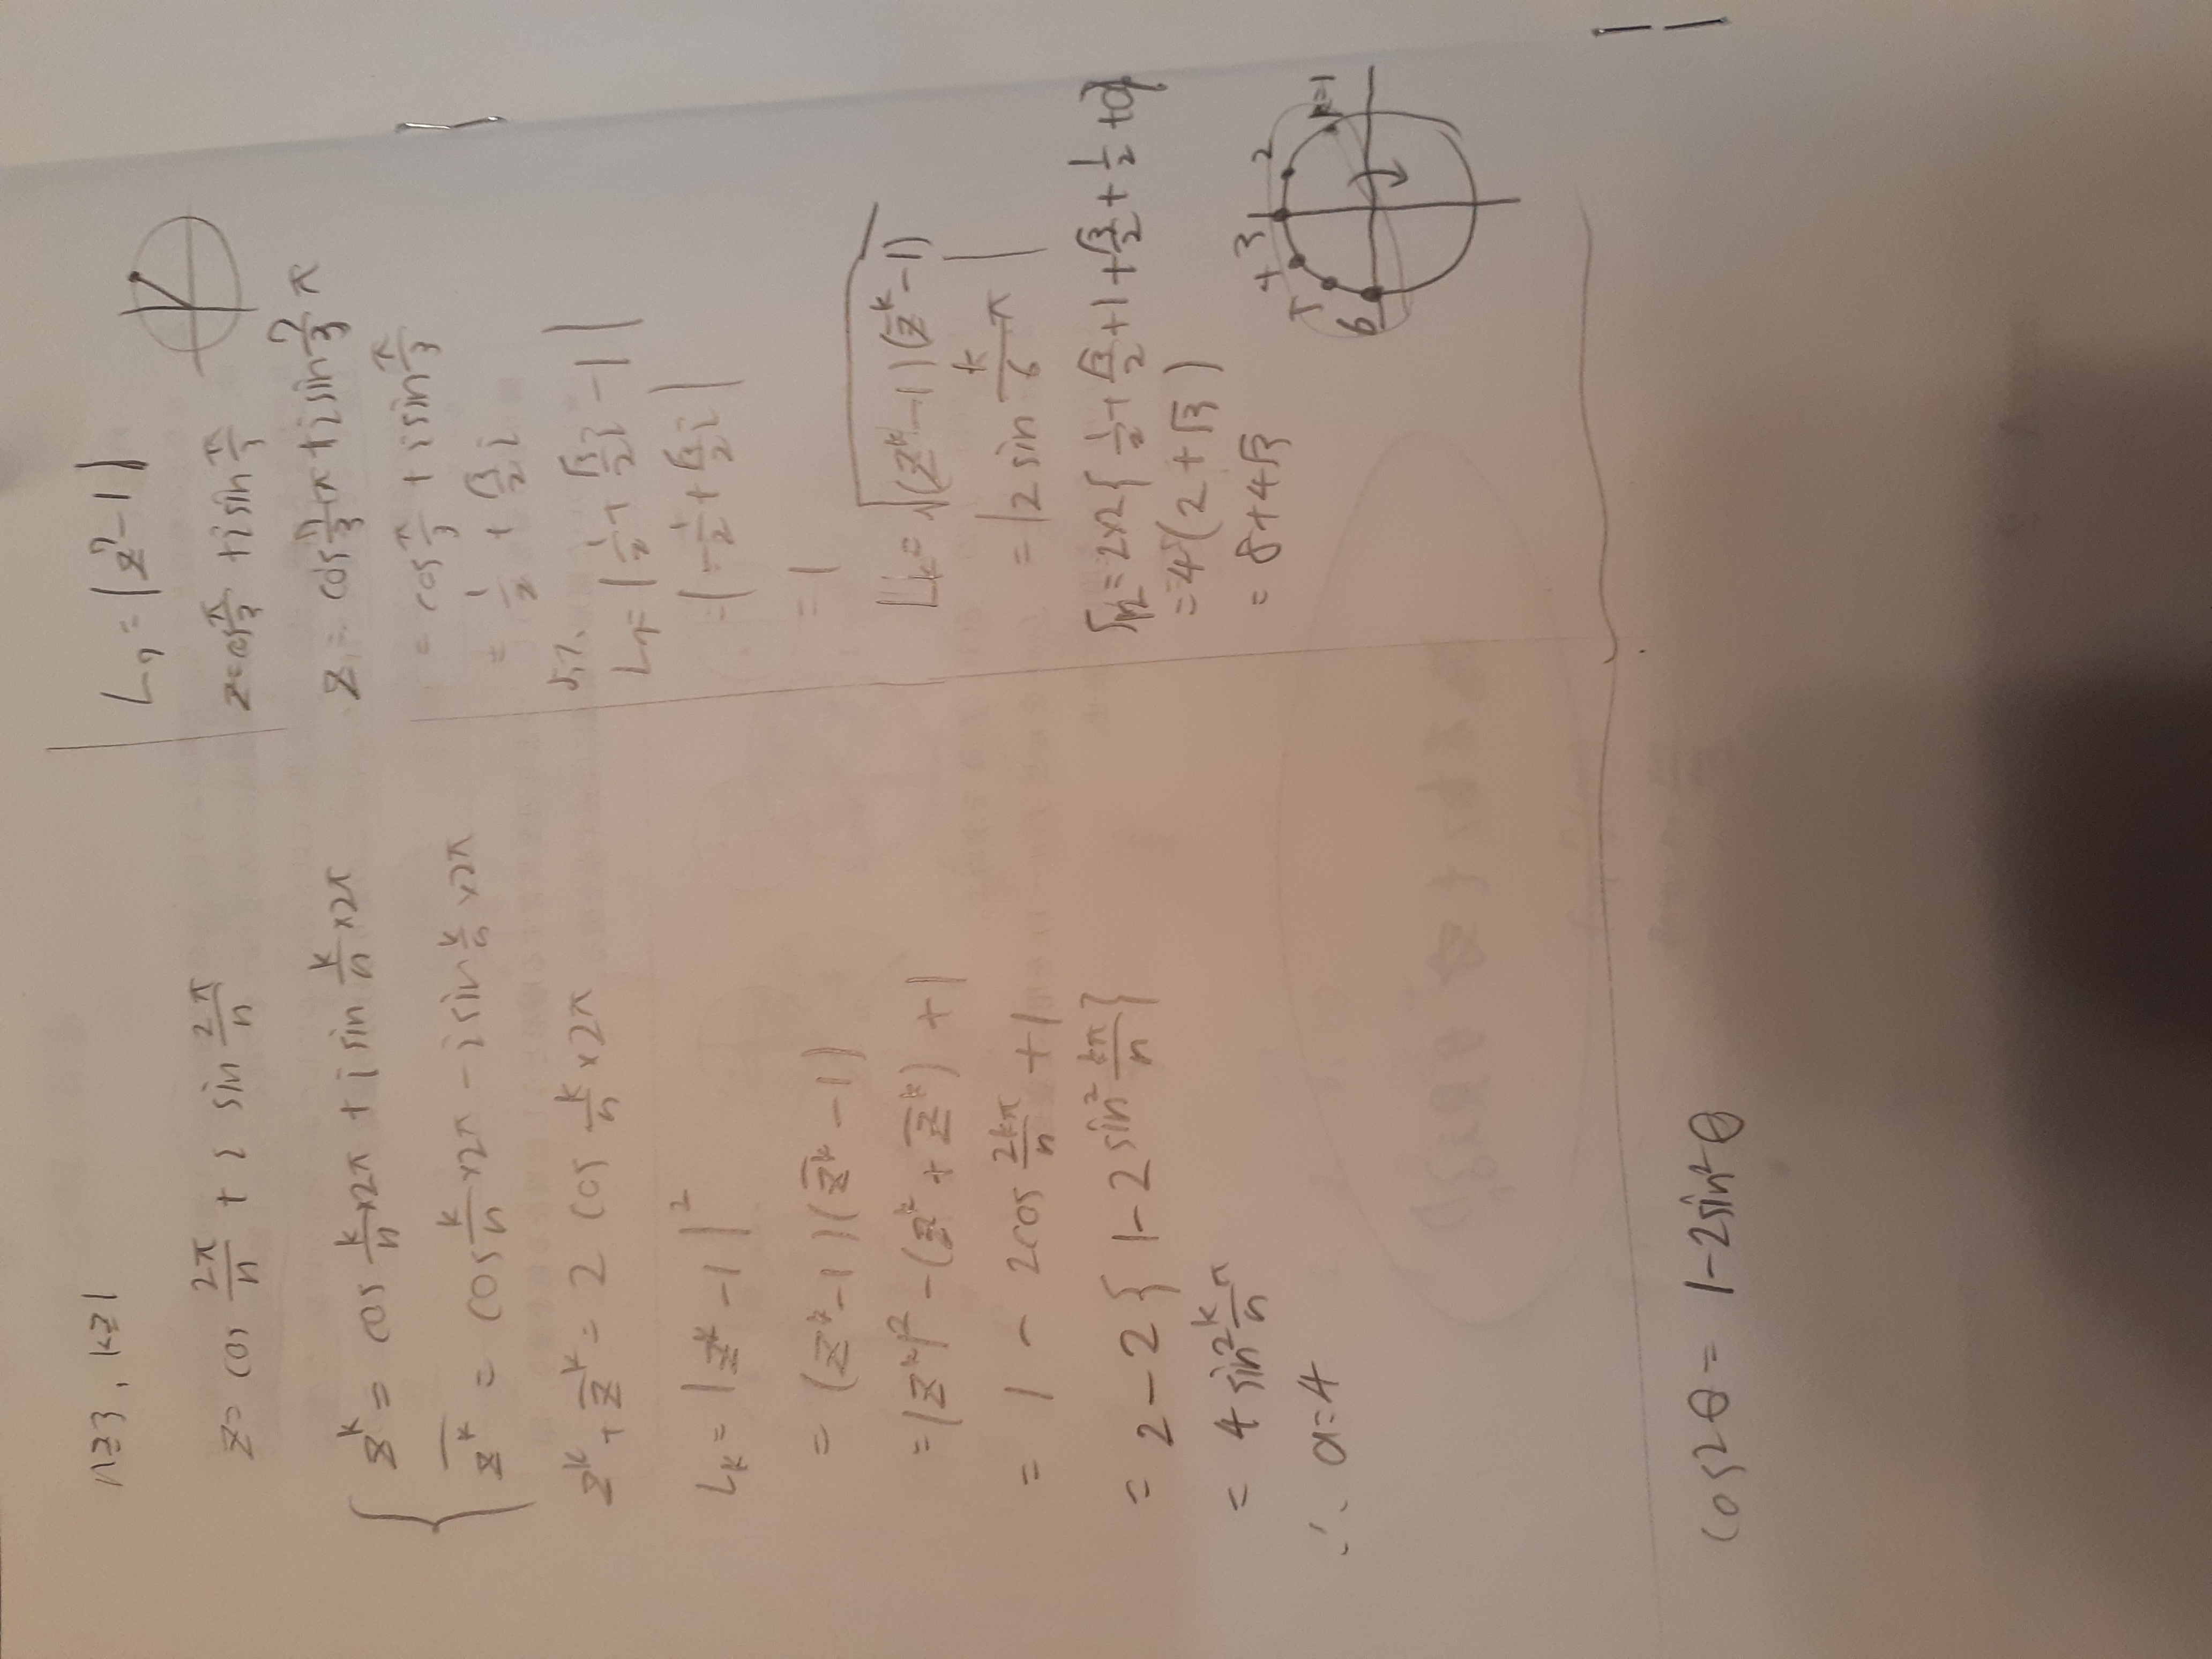 n≥3, k≥1
z = cos 2π/n + i sin 2π/n
z^k = cos k/n ×2π + i sin k/n ×2π
z̄^k = cos k/n ×2π - i sin k/n ×2π
z^k + z̄^k = 2 cos k/n ×2π
L_k = |z^k - 1|^2
= (z^k - 1)(z̄^k - 1)
= |z^k|^2 - (z^k + z̄^k) + 1
= 1 - 2cos 2kπ/n + 1
= 2 - 2{1 - 2sin^2 kπ/n}
= 4 sin^2 k/n π
∴ a=4
cos2θ = 1-2sin^2θ
L_7 = |z^7 - 1|
z = cos π/3 + i sin π/3
z = cos 7/3 π + i sin 7/3 π
= cos π/3 + i sin π/3
= 1/2 + √3/2 i
L_7 = |1/2 + √3/2 i - 1|
= |-1/2 + √3/2 i|
= 1
L_k = √(z^k - 1)(z̄^k - 1)
= |2 sin k/6 π|
= 2×2{1/2 + √3/2 + 1 + √3/2 + 1/2 + 0}
= 4(2+√3)
= 8+4√3
k=1
2
3
4
5
6